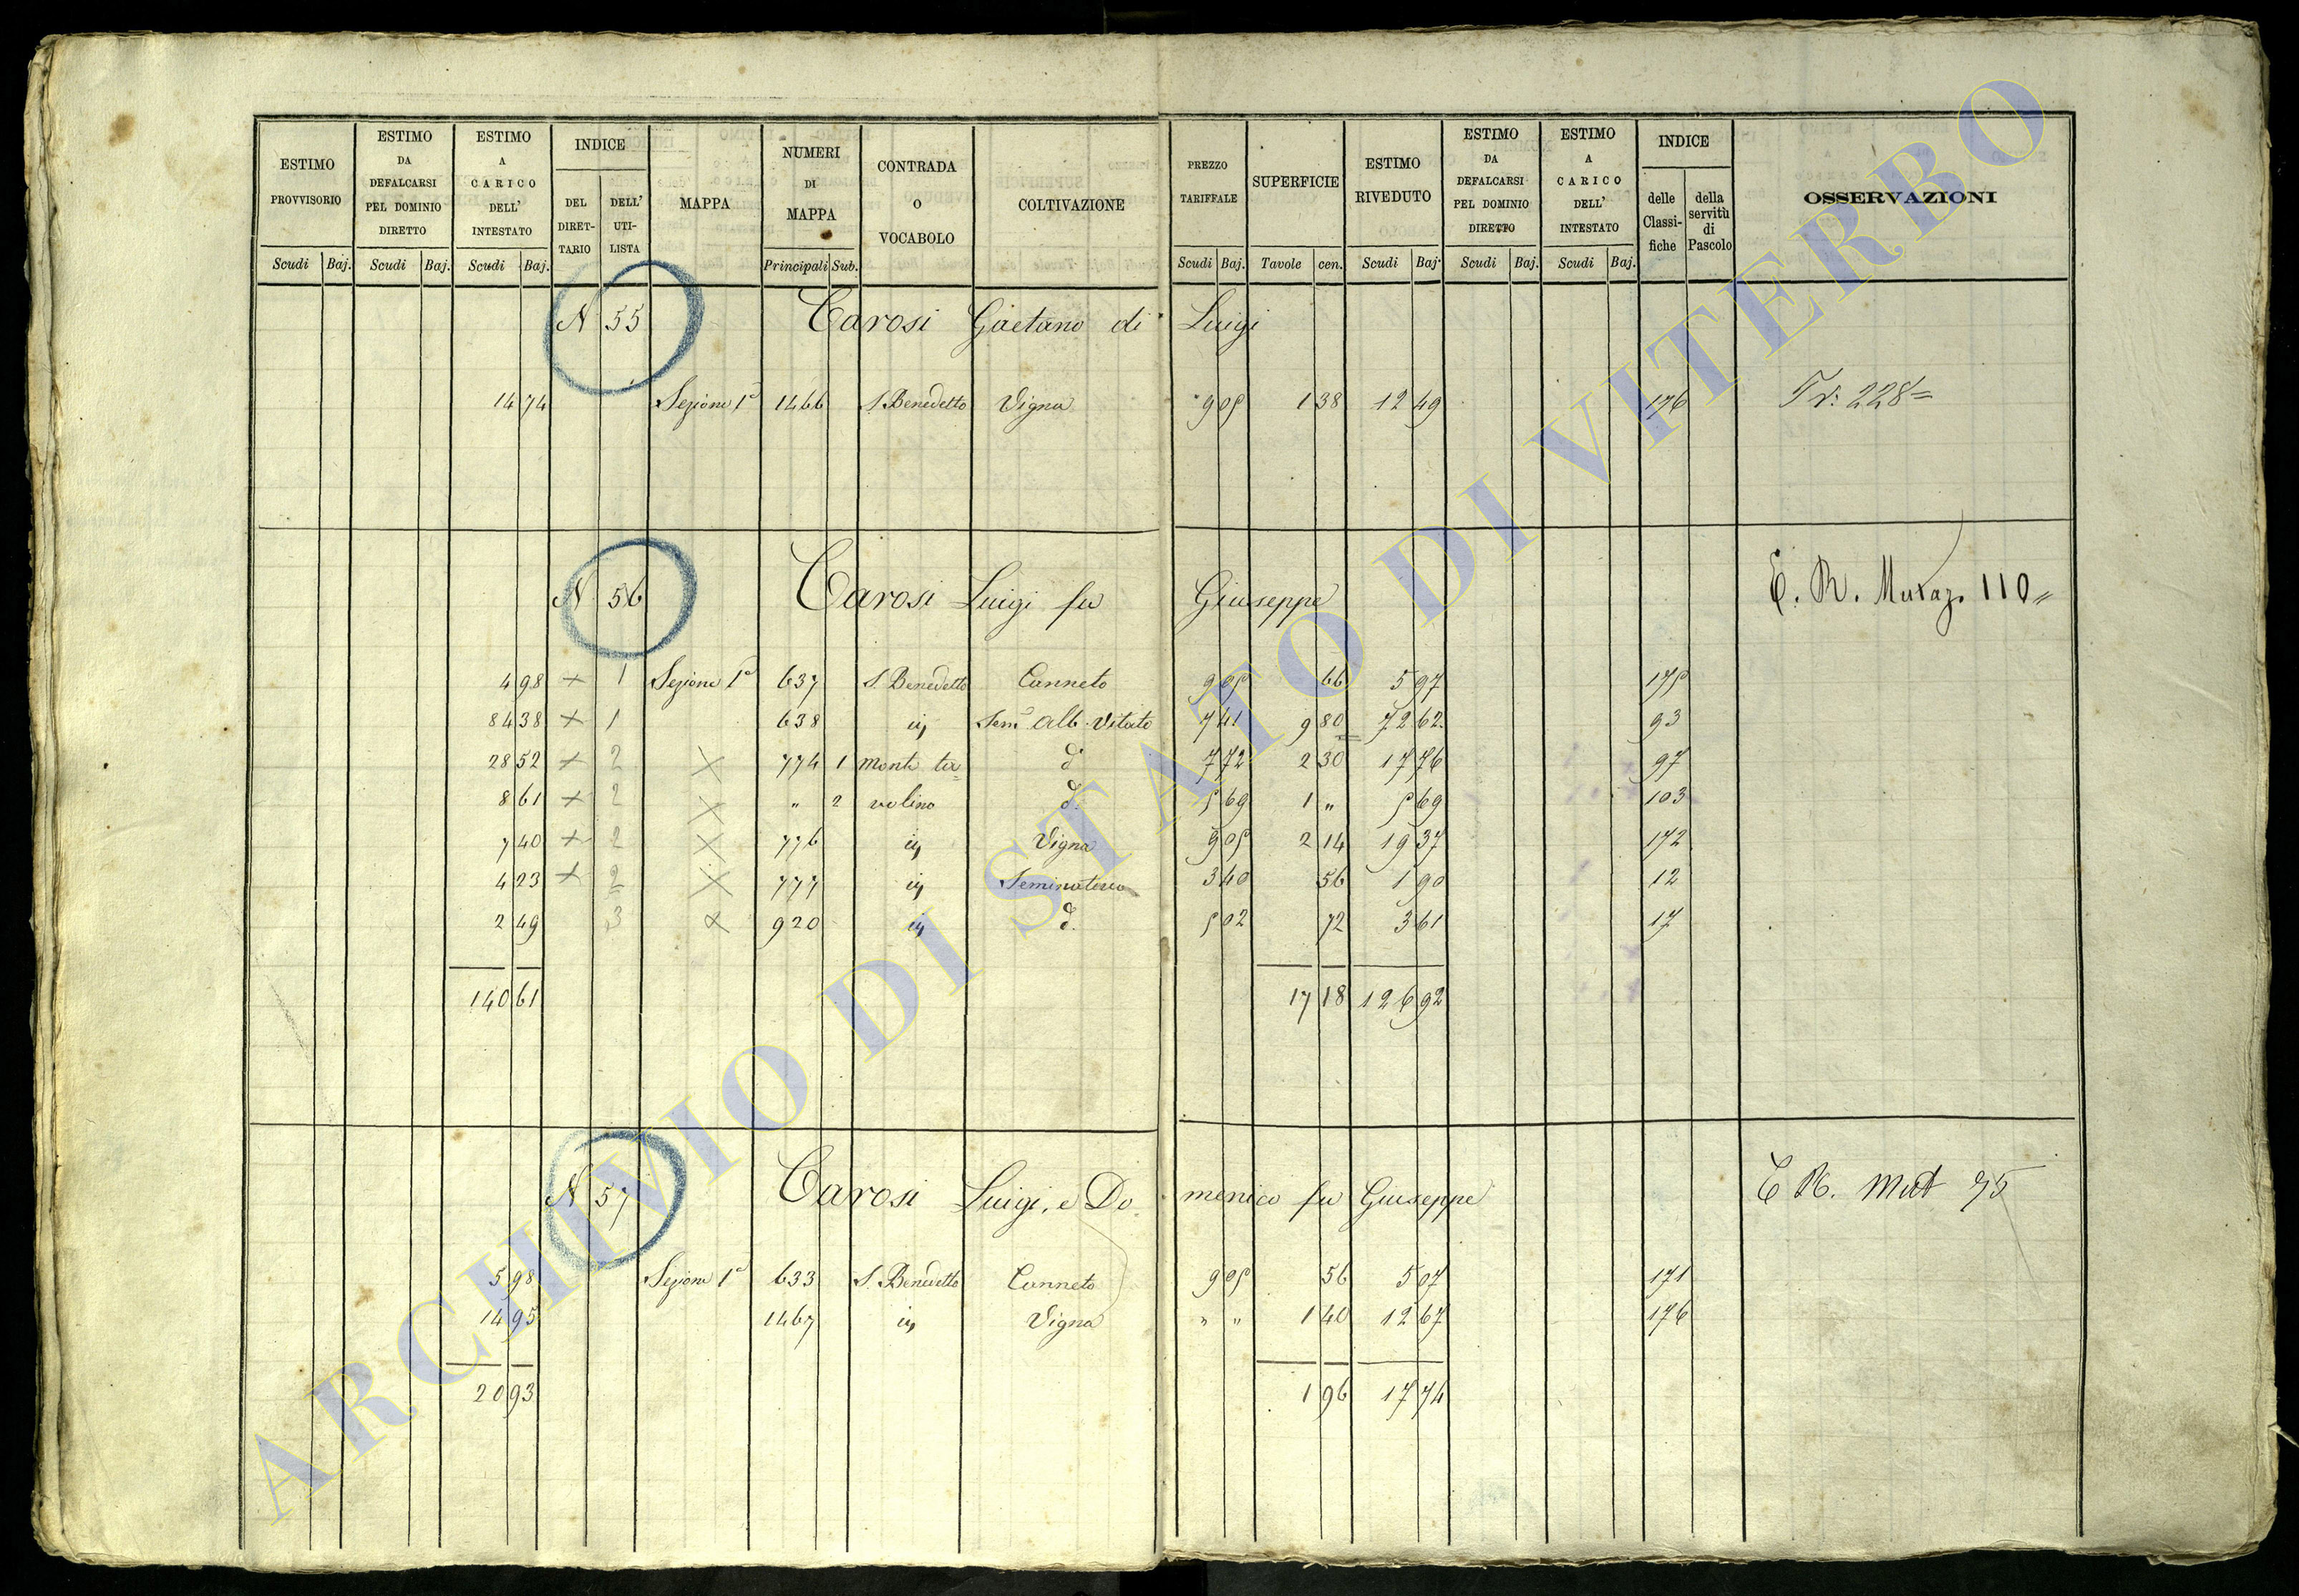 ESTIMO PROVVISORIO Scudi Baj. ESTIMO DA DEFALCARSI PEL DOMINIO DIRETTO Scudi Baj. ESTIMO A CARICO DELL' INTESTATO Scudi Baj. INDICE DEL DIRET-TARIO DELL' UTI-LISTA MAPPA NUMERI DI MAPPA Principali Sub. CONTRADA O VOCABOLO COLTIVAZIONE PREZZO TARIFFALE Scudi Baj. SUPERFICIE Tavole cen. ESTIMO RIVEDUTO Scudi Baj. ESTIMO DA DEFALCARSI PEL DOMINIO DIRETTO Scudi Baj. ESTIMO A CARICO DELL' INTESTATO Scudi Baj. INDICE delle Classi-fiche della servitù di Pascolo OSSERVAZIONI
N 55 Carosi Gaetano di Luigi
14 74 Sezione 1ª 1466 S. Benedetto Vigna 9 05 1 38 12 49 176 Tr: 228=
N 56 Carosi Luigi fu Giuseppe E. R. Mutaz. 110"
4 98 + 1 Sezione 1ª 637 S. Benedetto Canneto 9 05 66 5 97 175
84 38 + 1 638 iy Sem. Alb. Vitato 7 41 9 80 72 62 93
28 52 + 2 × 774 1 Monte ta= d. 7 72 2 30 17 76 97
8 61 + 2 × " 2 volino d. 5 69 1 " 5 69 103
7 40 + 2 × 776 iy Vigna 9 05 2 14 19 37 172
4 23 + 2 × 777 iy 3 40 56 1 90 12
2 49 3 × 920 iy d. 5 02 72 3 61 17
140 61 17 18 126 92
N 57 Carosi Luigi, e Domenico fu Giuseppe E R. Mut 75
5 98 Sezione 1ª 633 S. Benedetto Canneto 9 05 56 5 07 171
14 95 1467 iy Vigna " " 1 40 12 67 176
20 93 1 96 17 74
ARCHIVIO DI STATO DI VITERBO